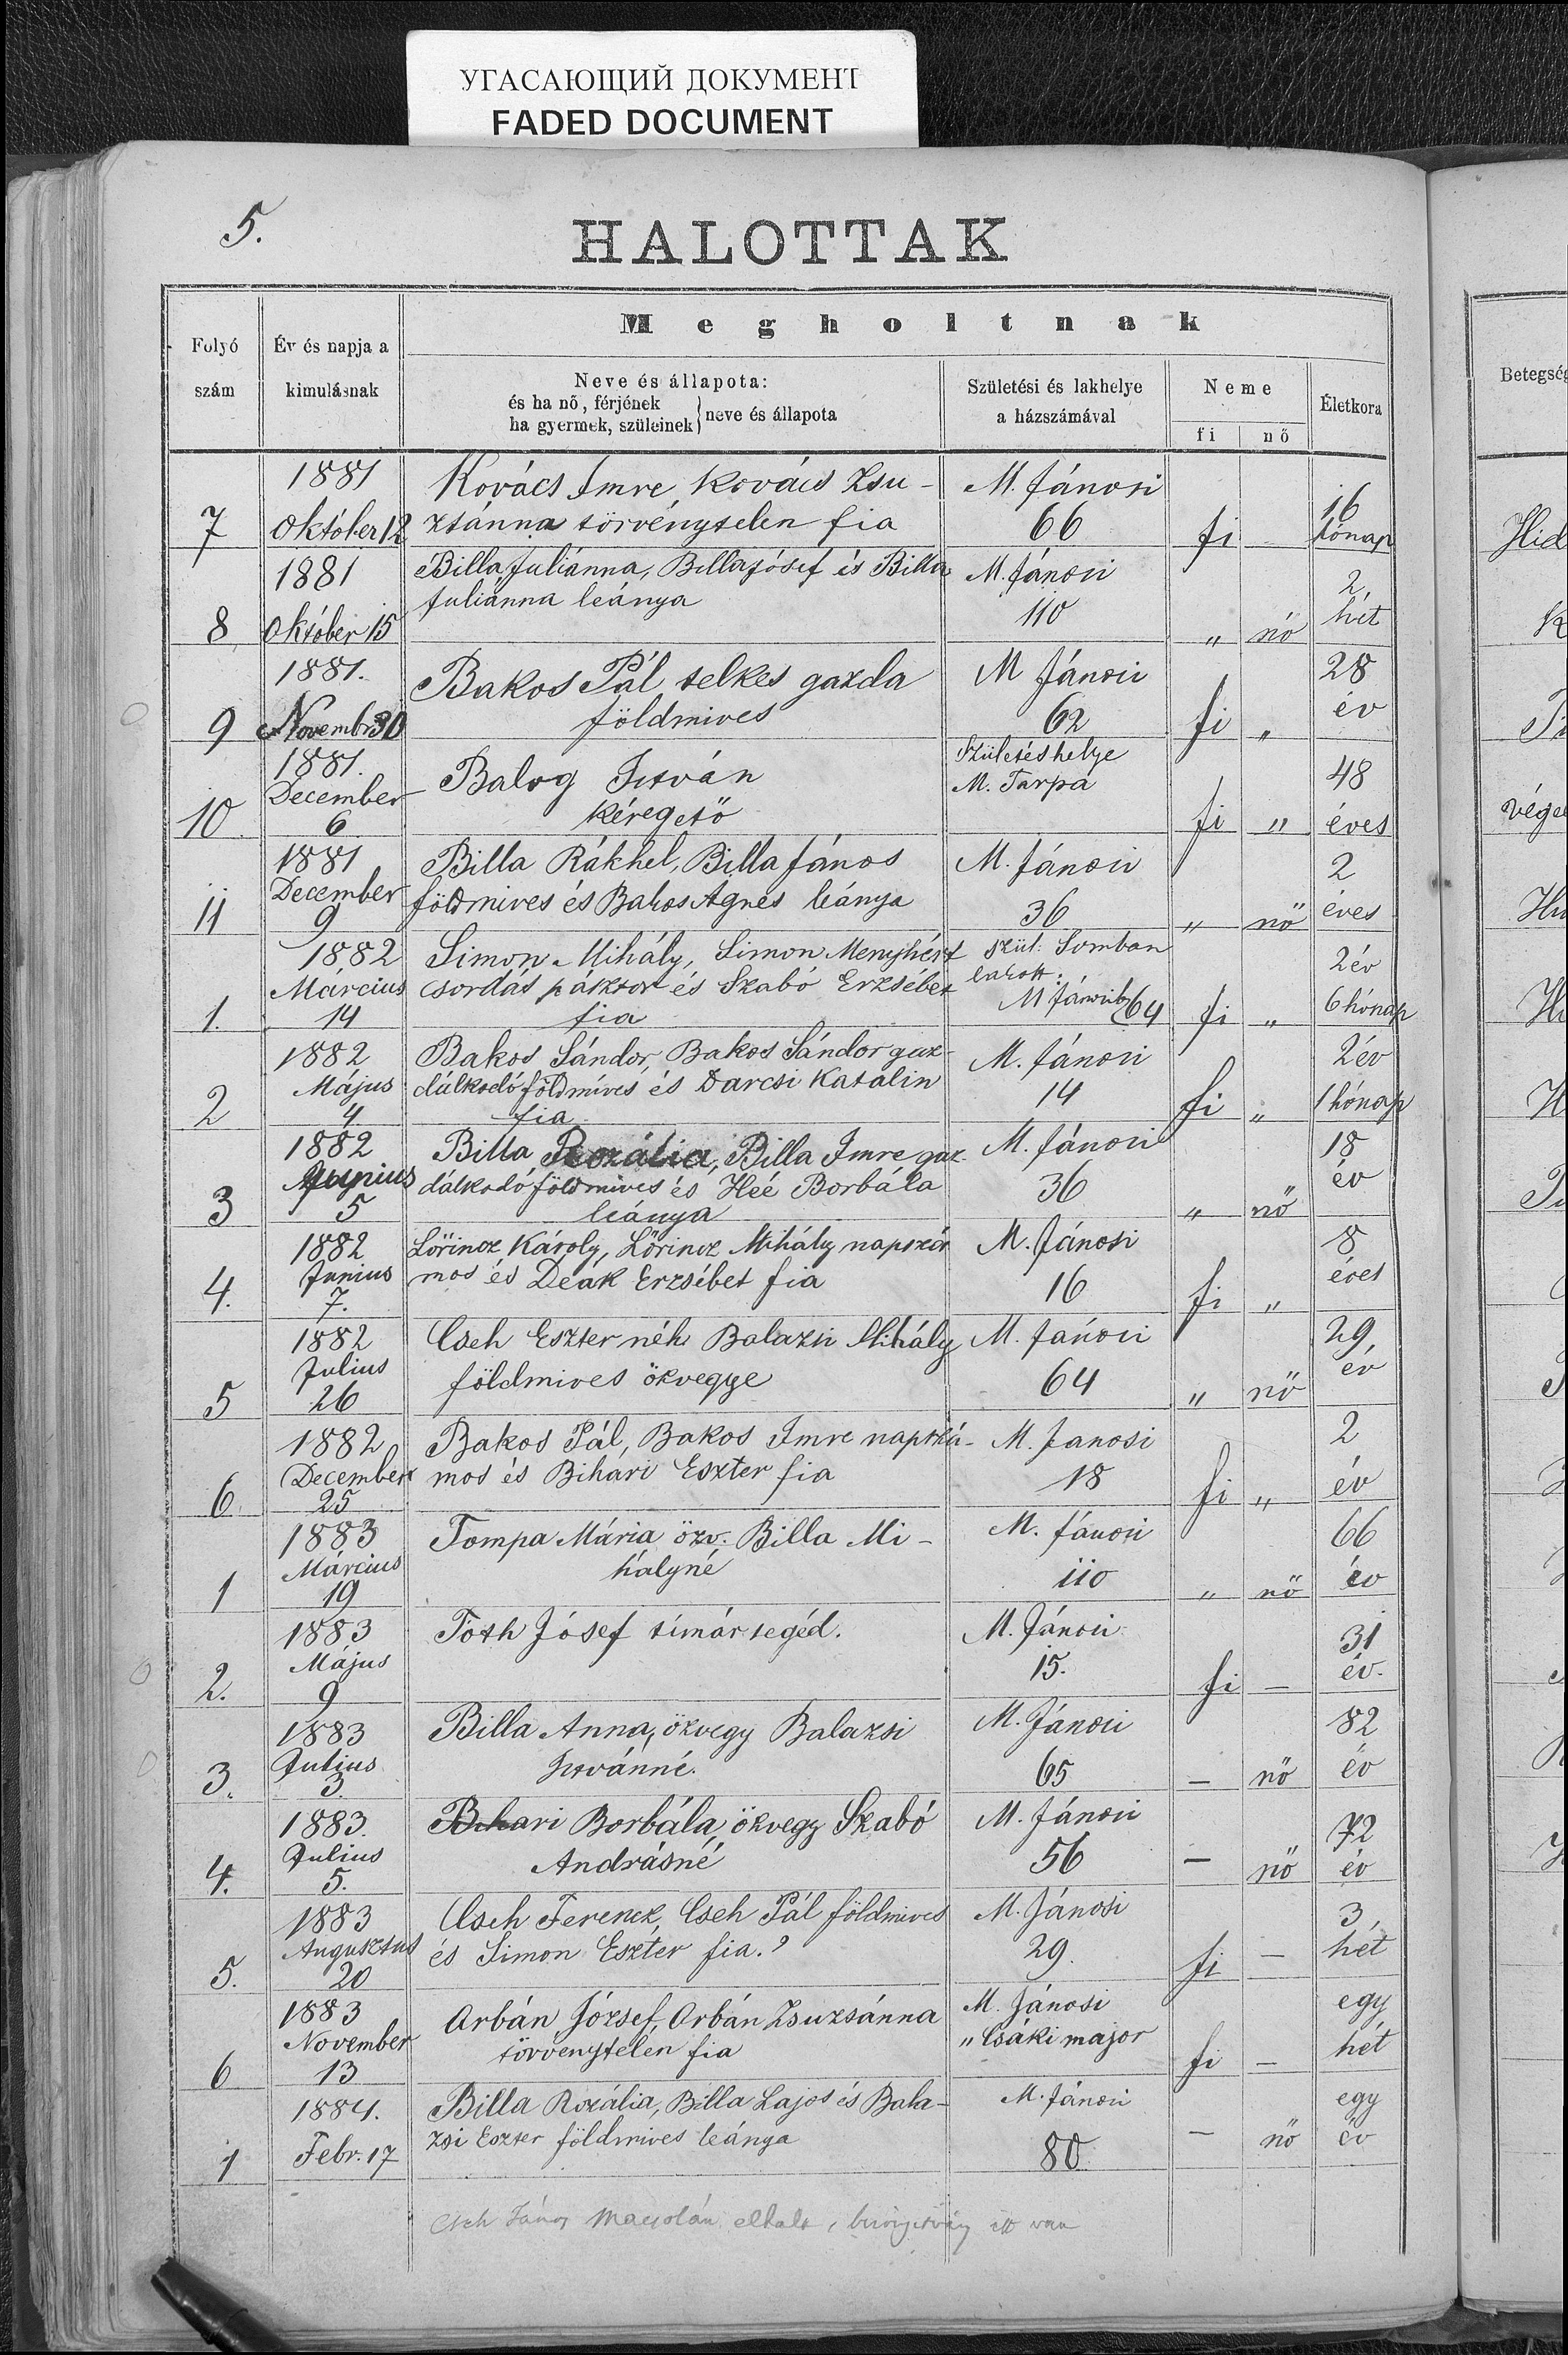 УГАСАЮЩИЙ ДОКУМЕНТ
FADED DOCUMENT
5.
HALOTTAK
Folyó szám
Év és napja a kimulásnak
Megholtnak
Neve és állapota:
és ha nő, férjének
ha gyermek, szüleinek } neve és állapota
Születési és lakhelye
a házszámával
Neme
fi nő
Életkora
Betegség
1881 Kovács Imre, Kovács Zsu- M. Jánosi 16
7 Október 12 zsánna törvénytelen fia 66 fi - hónap
1881 Billa Juliánna, Billa Jósef és Billa M. Jánosi 2
Juliánna leánya 110 hét
8 Október 15 " nő
1881. Bakos Pál telkes gazda M Jánosi 28
9 Novembr 30 földmives 62 fi " év
1881. Balog István Születéshelye 48
December M. Tarpa
10 6 kéregető fi " éves
1881 Billa Rákhel, Billa János M. Jánosi 2
December földmives és Bakos Agnes leánya
11 9 36 " nő éves
1882 Simon Mihály, Simon Menyhért szül: Somban 2 év
Március csordás pásztor és Szabó Erzsébet lakott:
1. 14 fia M Jánosiby 64 fi " 6 hónap
1882 Bakos Sándor, Bakos Sándor gaz- M. Jánosi 2 év
Május dálkodó földmíves és Darcsi Katalin 14
2 4 fia fi " 1 hónap
1882 Billa Rozália, Billa Imre gaz- M. Jánosi 18
Junius dálkodó földmives és Héé Borbála 36 év
3 5 leánya " nő
1882 Lőrincz Károly, Lőrincz Mihály napszá- M. Jánosi 8
Junius mos és Deák Erzsébet fia 16 éves
4. 7. fi "
1882 Cseh Eszter néh Balazsi Mihály M. Jánosi 29
Julius földmives özvegye 64 év
5 26 " nő
1882 Bakos Pál, Bakos Imre napszá- M. Janosi 2
December mos és Bihari Eszter fia 18 év
6. 25 fi "
1883 Tompa Mária özv. Billa Mi- M. Jánosi 66
Március hályné 110 év
1 19 " nő
1883 Tóth Jósef tímársegéd. M. Jánosi 31
Május 15. év.
2. 9 fi -
1883 Billa Anna, özvegy Balazsi M. Jánosi 82
Julius Istvánné. 65 év
3. 3. - nő
1883. Bihari Borbála, özvegy Szabó M. Jánosi 72
Julius Andrásné 56 év
4. 5. - nő
1883 Cseh Ferencz, Cseh Pál földmives M. Jánosi 3
Augusztus és Simon Eszter fia. 29. hét
5. 20 fi -
1883 Orbán József, Orbán Zsuzsánna M. Jánosi egy
November törvenytelen fia " Csáki major hét
6 13 fi -
1884. Billa Rozália, Billa Lajos és Bala- M. Jánosi egy
zsi Eszter földmives leánya év
1 Febr. 17 80 - nő
Cseh János Macsolán elhalt, itt van